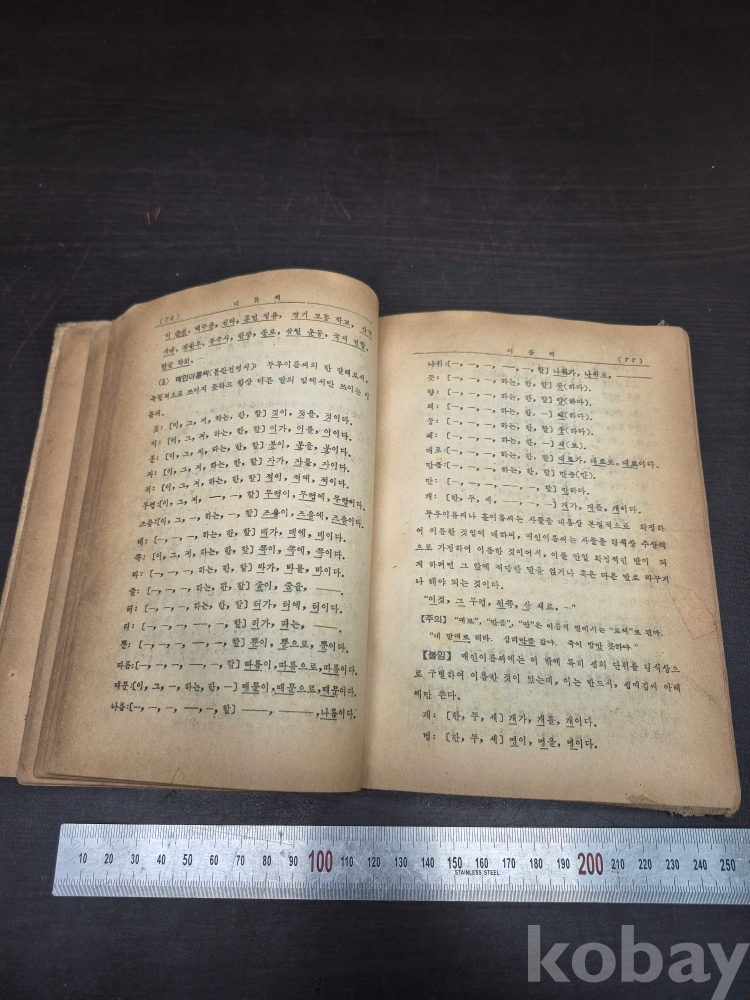 (76) 이 름 씨
이 순신, 을 경기 고등 학교,
한글 학회.
(ㄹ) 매인이름씨(불완전명사): 두루이름씨의 한 갈래로서,
독립적으로 쓰이지 못하고 항상 다른 말의 밑에서만 쓰이는 이
름씨.
것: [이, 그, 저, 하는, 한, 할] 것이, 것을, 것이다.
이: [이, 그, 저, 하는, 한, 할] 이가, 이를, 이이다.
분: [이, 그, 저, 하는, 한, 할] 분이, 분을, 분이다.
자: [이, 그, 저, 하는, 한, 할] 자가, 자를, 자이다.
적: [이, 그, 저, 하는, 한, 할] 적이, 적에, 적이다.
무렵: [이, 그, 저, —, —, 할] 무렵이, 무렵에, 무렵이다.
즈음: [이, 그, —, 하는, —, 할] 즈음이, 즈음에, 즈음이다.
데: [—, —, —, 하는, 한, 할] 데가, 데에, 데이다.
쪽: [이, 그, 저, 하는, 한, 할] 쪽이, 쪽에, 쪽이다.
바: [—, —, —, 하는, 한, 할] 바가, 바를, 바이다.
줄: [—, —, —, 하는, 한, 할] 줄이, 줄을, ——.
터: [—, —, —, 하는, 한, 할] 터가, 터에, 터이다.
리: [—, —, —, —, —, 할] 리가, 리는, ——.
뿐: [—, —, —, —, —, 할] 뿐이, 뿐으로, 뿐이다.
따름: [—, —, —, —, —, 할] 따름이, 따름으로, 따름이다.
때문: [이, 그, —, 하는, 한, —] 때문이, 때문에, 때문이다.
나름: [—, —, —, —, —, 할] ——, ——, 나름이다.
이 름 씨 (77)
나위: [—, —, —, —, —, 할] 나위가, 나위로, ——.
듯: [—, —, —, 하는, 한, 할] 듯(하다).
양: [—, —, —, 하는, 한, 할] 양(하다).
체: [—, —, —, 하는, 한, —] 체(하다).
둥: [—, —, —, 하는, 한, 할] 둥(하다).
채: [—, —, —, 하는, 한, —] 채(로).
대로: [—, —, —, 하는, 한, 할] 대로가, 대로로, 대로이다.
만큼: [—, —, —, 하는, 한, 할] 만큼(만).
만: [—, —, —, —, —, 할] 만하다.
개: [한, 두, 세, —, —, —] 개가, 개를, 개이다.
두루이름씨나 홀이름씨는 사물을 내용상 본질적으로 확정하
여 이름한 것임에 대하여, 매인이름씨는 사물을 형식상 추상적
으로 가정하여 이름한 것이어서, 이를 만일 확정적인 말이 되
게 하려면 그 앞에 적당한 말을 얹거나 혹은 다른 말로 바꾸거
나 해야 되는 것이다.
"이것, 그 무렵, 왼쪽, 산 채로, …"
【주의】 "대로", "만큼", "만"은 이름씨 밑에서는 "토씨"로 된다.
"내 말대로 해라. 십리만큼 갔다. 죽이 밥만 못하야."
【붙임】 매인이름씨에는 이 밖에 특히 셈의 단위를 형식상으
로 구별하여 이름한 것이 있는데, 이는 반드시, 셈매김씨 아래
에만 쓴다.
개: [한, 두, 세] 개가, 개를, 개이다.
명: [한, 두, 세] 명이, 명을, 명이다.
10 20 30 40 50 60 70 80 90 100 110 120 130 140 150 160 170 180 190 200 210 220 230 240 250
STAINLESS STEEL
kobay